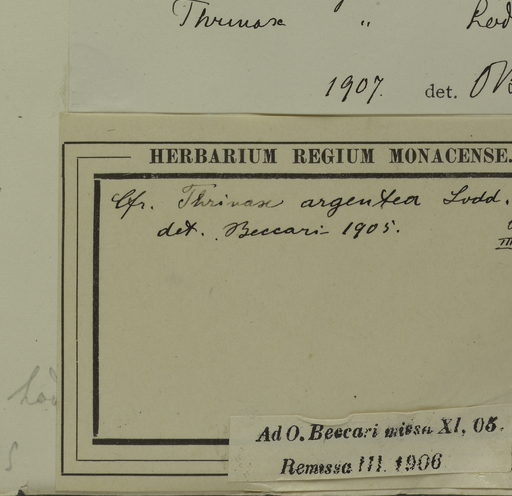 Thrinax „ Lod
1907. det.
HERBARIUM REGIUM MONACENSE.
Cfr. Thrinax argentea Lodd.
det. Beccari 1905.
Ad O. Beccari missa XI, 05.
Remissa III. 1906